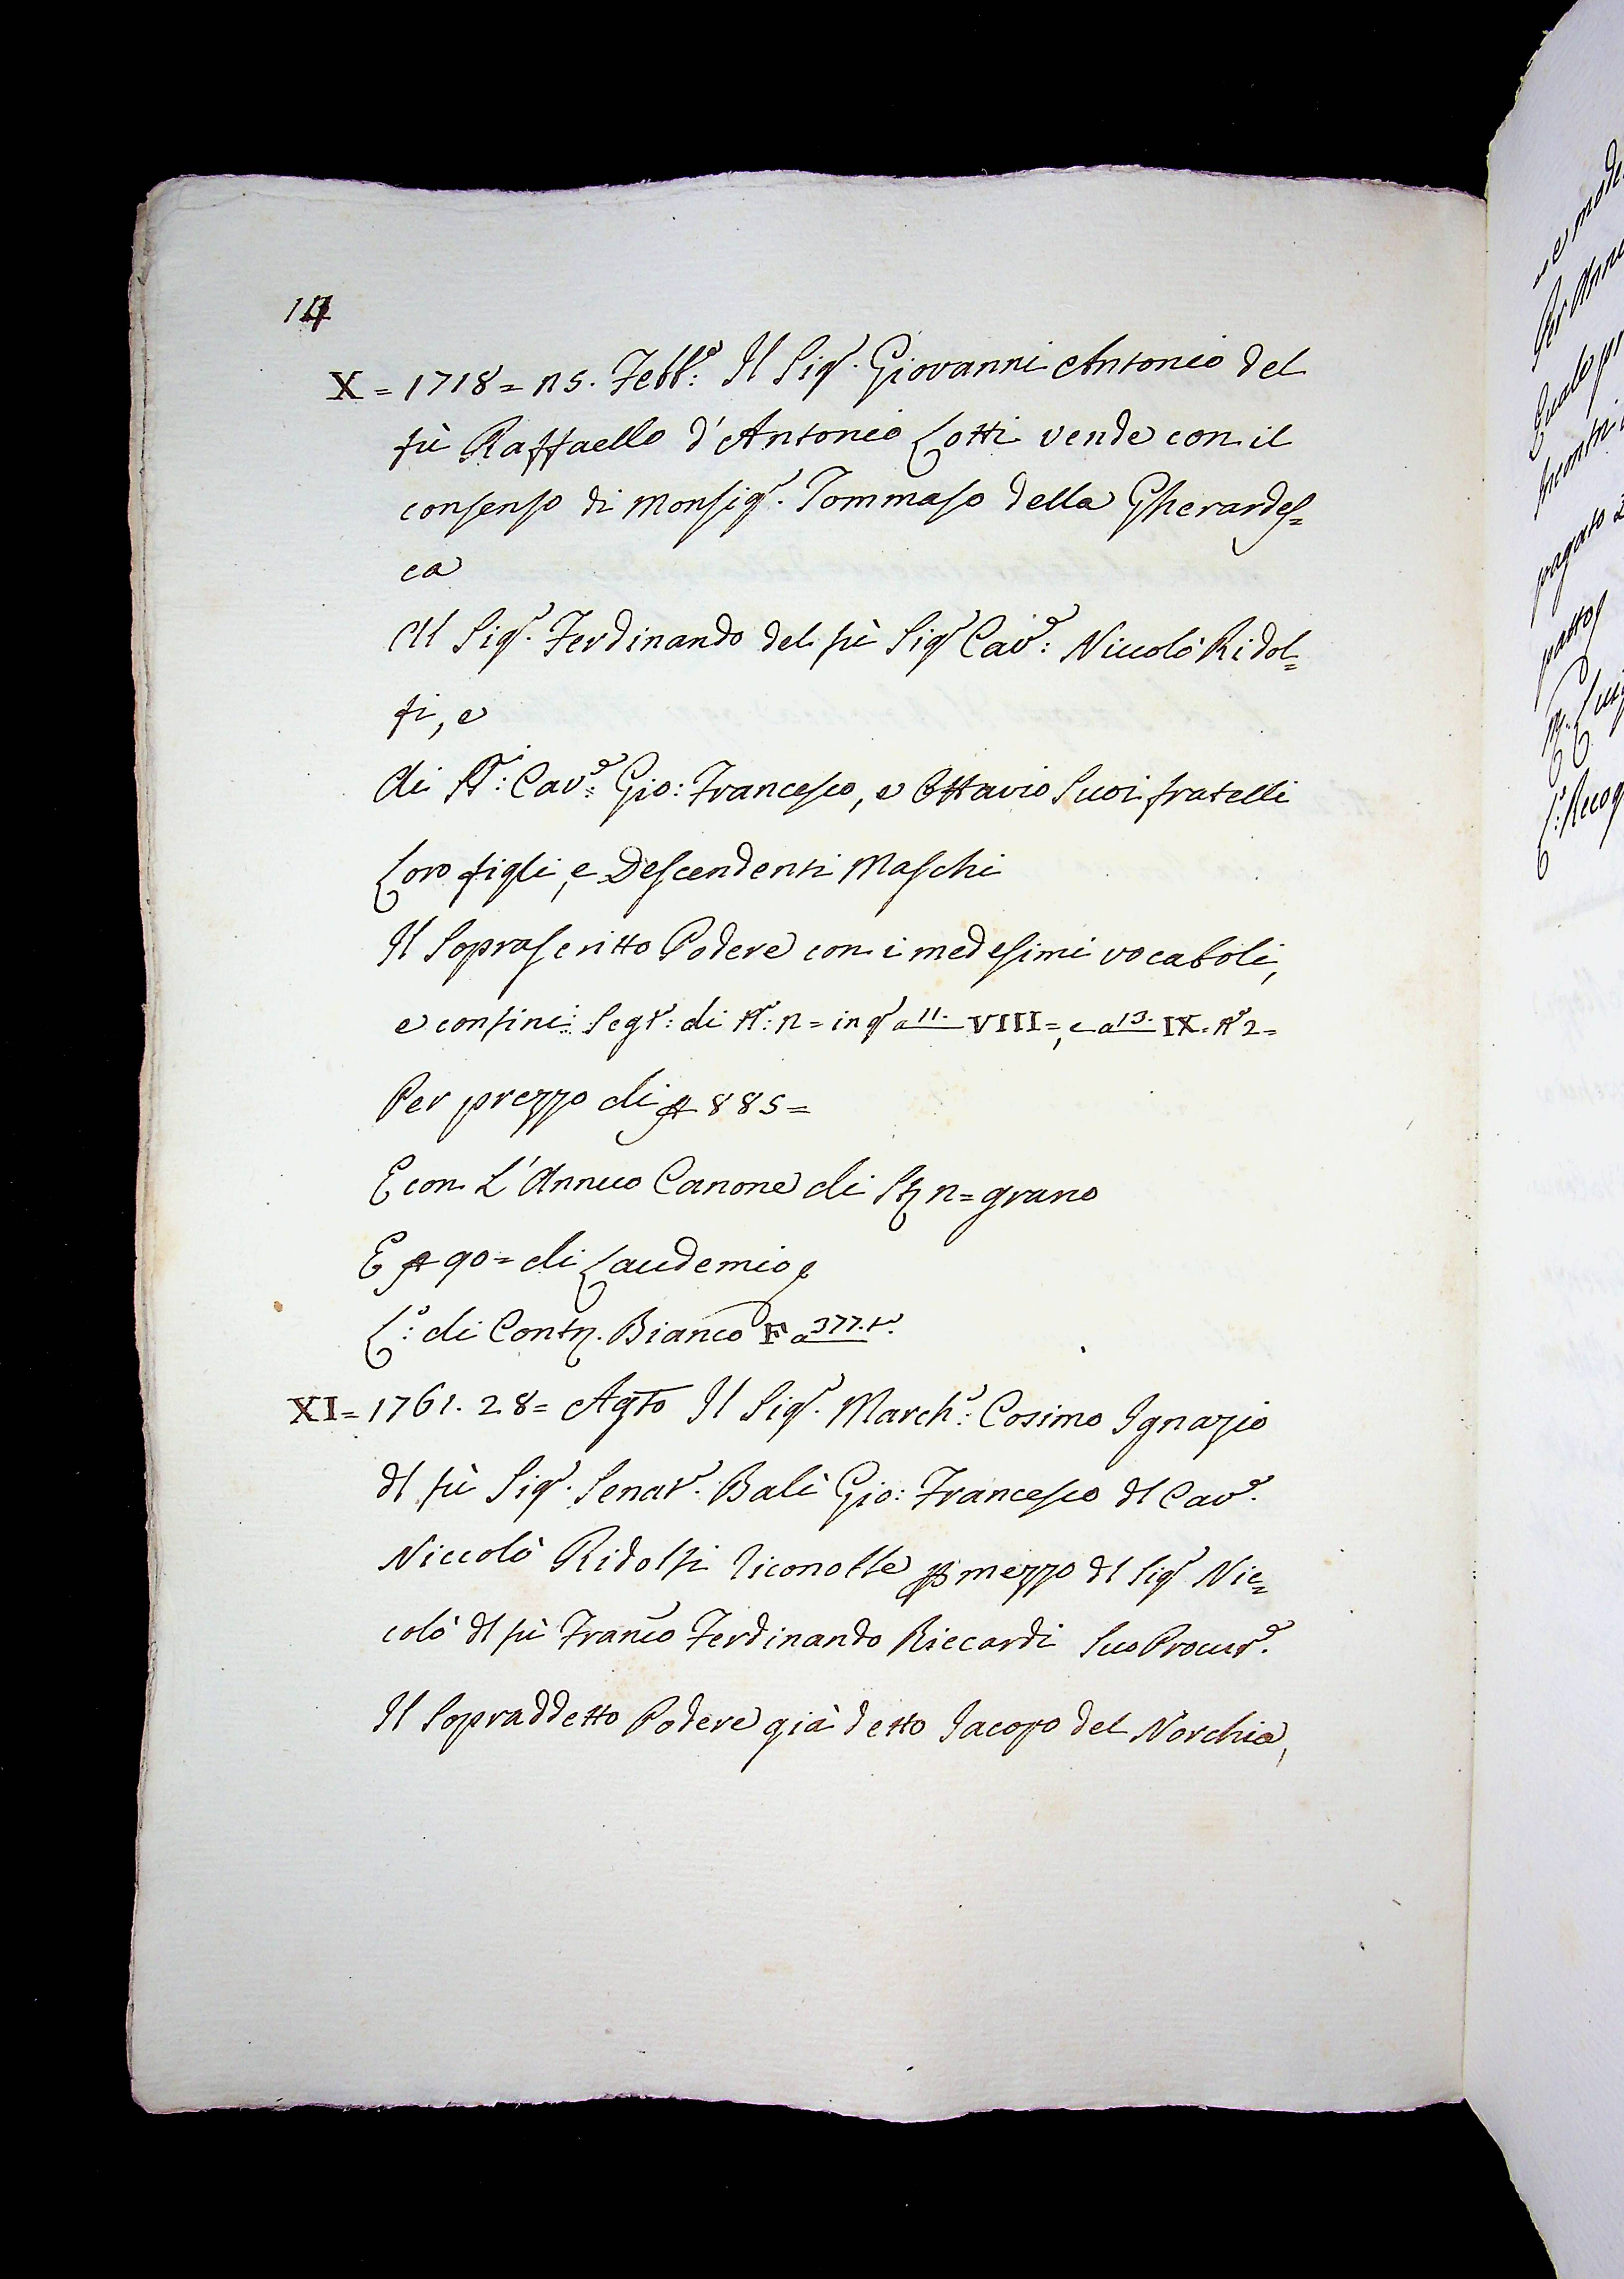 14
X = 1718 = ns. Febb.º: Il Sig.r Giovanni Antonio del
fù Raffaello d'Antonio Lotti vende con il
consenso di Monsig.r Tommaso della Gherardes=
ca
Al Sig.r Ferdinando del fù Sig.r Cav.e: Niccolò Ridol=
fi, e
di Cav.e: Gio: Francesco, e Ottavio Suoi fratelli
Loro figli, e Descendenti Maschi
Il Soprascritto Podere con i medesimi vocaboli,
e confini: Segt: di n= in q.o a 11. VIII=, e a 13. IX. 2=
Per prezzo di 885=
E con L'Annuo Canone di n= grano
E 90= di Laudemio
L.º: di Contr. Bianco F a 377.t.o
XI= 1761. 28= Agto Il Sig.r March.e: Cosimo Ignazio
dl fù Sig.r Senat.r Balì Gio: Francesco dl Cav.e
Niccolò Ridolfi riconobbe p mezzo dl Sig.r Nic=
colò dl fù Franco Ferdinando Riccardi Suo Procur.e
Il Sopraddetto Podere già detto Jacopo del Norchia,
e mode
Per Annu
Quale pr
Incontri
pagato
patto
L.º: Recog